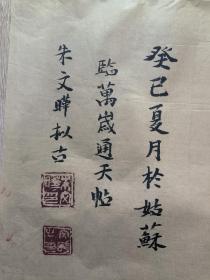 癸巳夏月於姑蘇
臨萬歲通天帖
朱文暉拟古